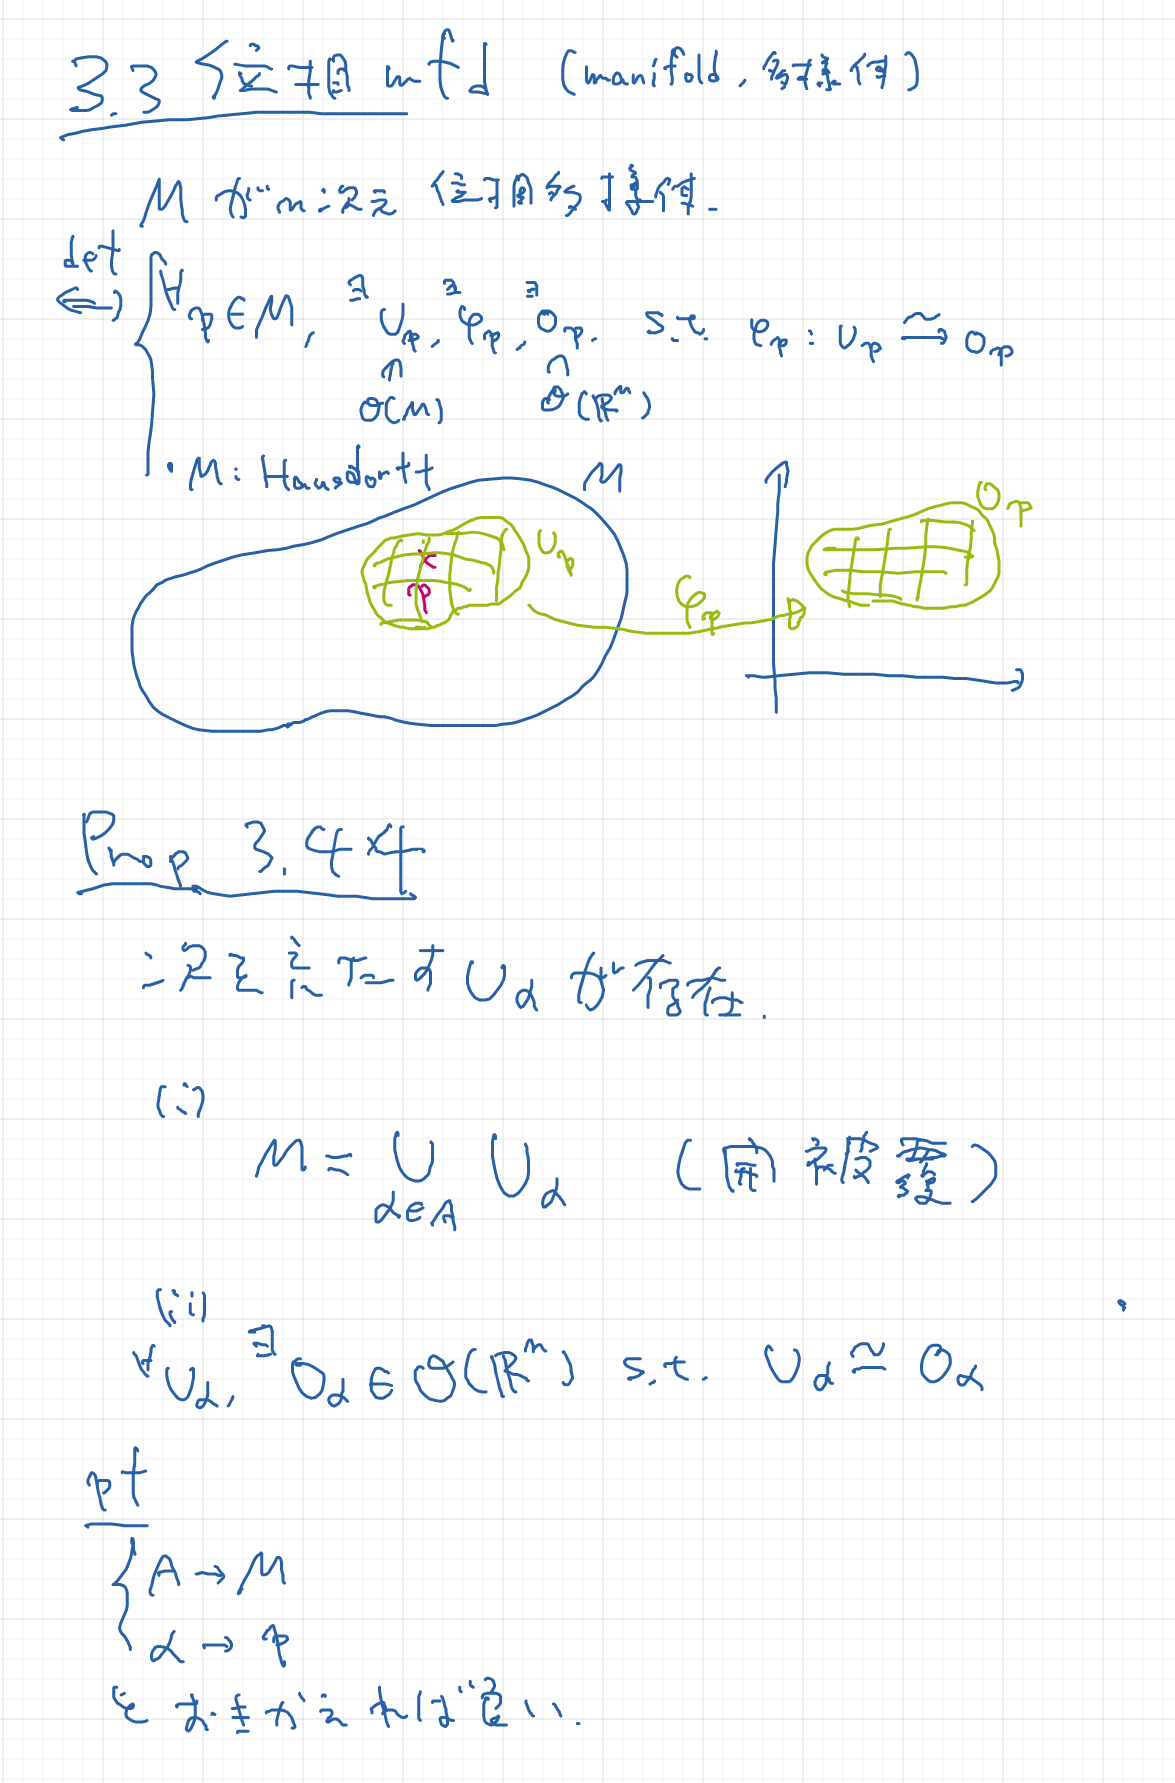 3.3 位相 mfd (manifold, 多様体)
M が n 次元 位相多様体.
def ⟺ { ∀p ∈ M, ∃U_p, ∃φ_p, ∃O_p. s.t. φ_p : U_p ≅→ O_p
∩ ∩
𝒪(M) 𝒪(ℝⁿ)
・M : Hausdorff
M
O_p
U_p
×
p
φ_p
Prop 3.44
次を満たす U_α が存在.
(i)
M = ∪_{α∈A} U_α (開被覆)
(ii)
∀U_α, ∃O_α ∈ 𝒪(ℝⁿ) s.t. U_α ≅ O_α
pf
{ A → M
α → p
とおきかえれば良い.